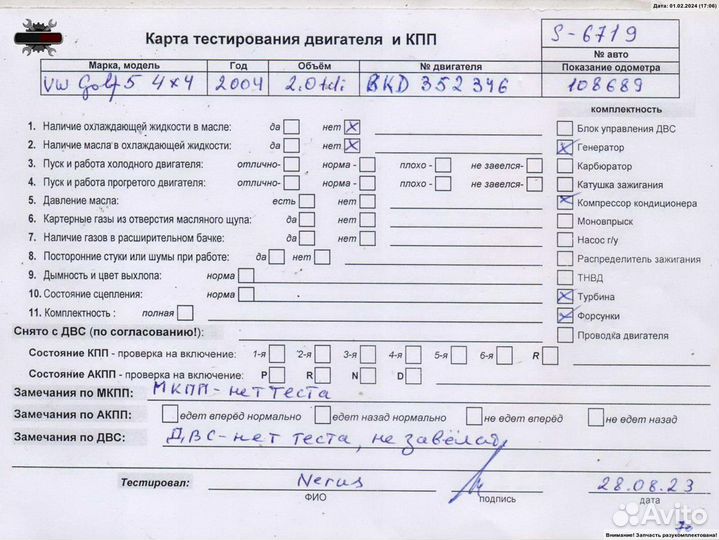 Дата: 01.02.2024 (17:06)
Карта тестирования двигателя и КПП
S-6719
№ авто
Марка, модель Год Объём № двигателя Показание одометра
VW Golf 5 4x4 2004 2.0tdi BKD 352346 108689
комплектность
1. Наличие охлаждающей жидкости в масле: да нет X
Блок управления ДВС
2. Наличие масла в охлаждающей жидкости: да нет X
X Генератор
3. Пуск и работа холодного двигателя: отлично- норма - плохо - не завелся-
Карбюратор
4. Пуск и работа прогретого двигателя: отлично- норма - плохо - не завелся-
Катушка зажигания
5. Давление масла: есть нет
X Компрессор кондиционера
6. Картерные газы из отверстия масляного щупа: да нет
Моновпрыск
7. Наличие газов в расширительном бачке: да нет
Насос г/у
8. Посторонние стуки или шумы при работе: да нет
Распределитель зажигания
9. Дымность и цвет выхлопа: норма
ТНВД
10. Состояние сцепления: норма
X Турбина
11. Комплектность : полная
X Форсунки
Снято с ДВС (по согласованию!):
Проводка двигателя
Состояние КПП - проверка на включение: 1-я 2-я 3-я 4-я 5-я 6-я R
Состояние АКПП - проверка на включение: P R N D
Замечания по МКПП: МКПП-нет теста
Замечания по АКПП: едет вперёд нормально едет назад нормально не едет вперёд не едет назад
Замечания по ДВС: ДВС-нет теста, не завелат
Тестировал: Nerus 28.08.23
ФИО подпись дата
Avito
Внимание! Запчасть разукомплектована!